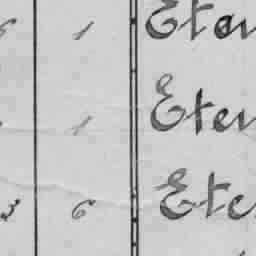 6 1 Eten
1 Eten
3 6 Ete